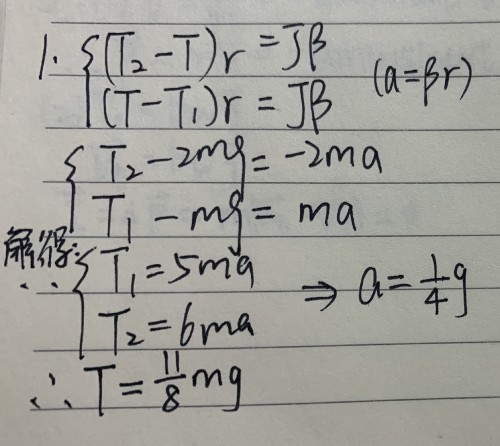 1. { (T₂-T)r = Jβ
(T-T₁)r = Jβ (a=βr)
{ T₂-2mg = -2ma
T₁-mg = ma
解得:
∴ { T₁=5ma ⇒ a=1/4g
T₂=6ma
∴ T=11/8mg